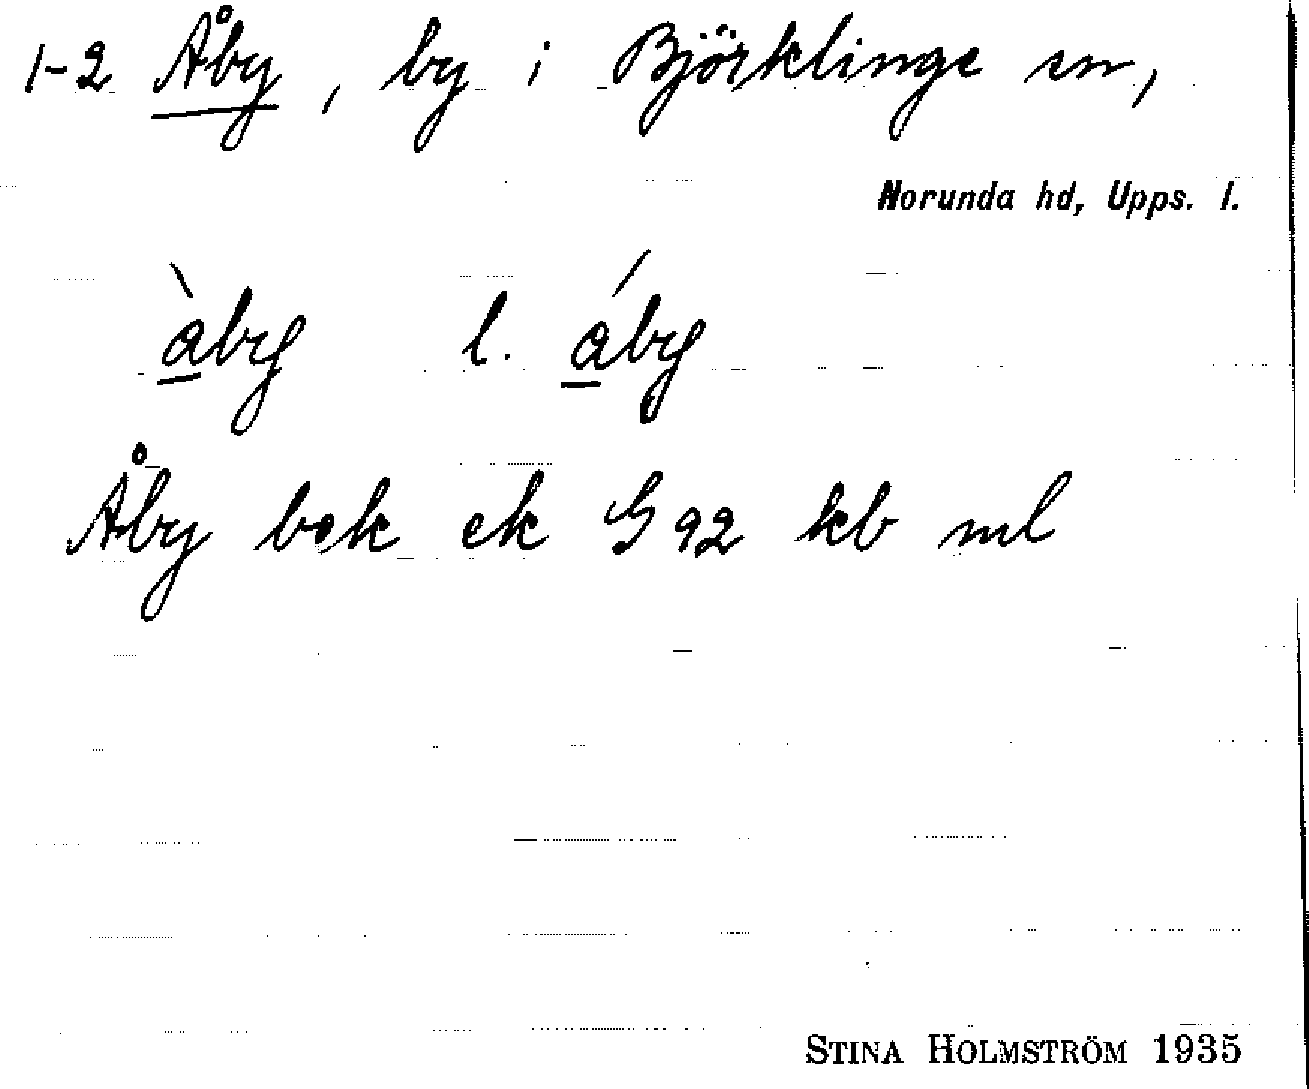 1-2 Åby, by i Björklinge sn,
Norunda hd, Upps. l.
àby l. áby
Åby bok ek G 92 kb ml
STINA HOLMSTRÖM 1935